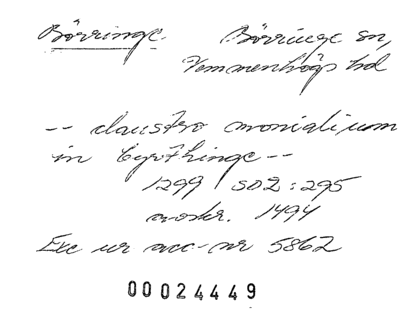 Börringe. Börringe sn,
Vemmenhögs hd
-- claustro monialium
in Byrthinge --
1299 SD2:295
avskr. 1494
Exc ur acc-nr 5862
00024449